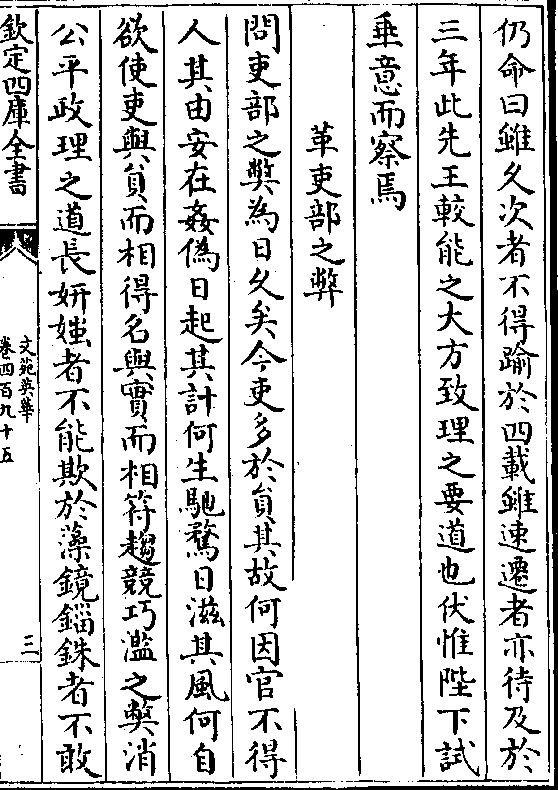 仍命曰雖久次者不得踰於四載雖速遷者亦待及於
三年此先王較能之大方致理之要道也伏惟陛下試
垂意而察焉
革吏部之弊
問吏部之弊為日久矣今吏多於員其故何因官不得
人其由安在姦偽日起其計何生馳騖日滋其風何自
欲使吏與員而相得名與實而相符趨競巧濫之弊消
公平政理之道長妍媸者不能欺於藻鏡錙銖者不敢
欽定四庫全書
文苑英華
卷四百九十五
三